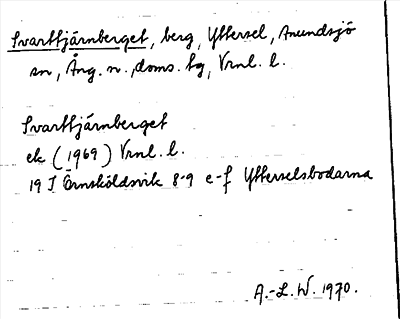 Svarttjärnberget, berg, Yttersel, Anundsjö
sn, Ång. n., doms. tg, Vrnl. l.
Svarttjärnberget
ek (1969) Vrnl. l.
19 I Örnsköldsvik 8-9 e-f Ytterselsbodarna
A.-L. W. 1970.